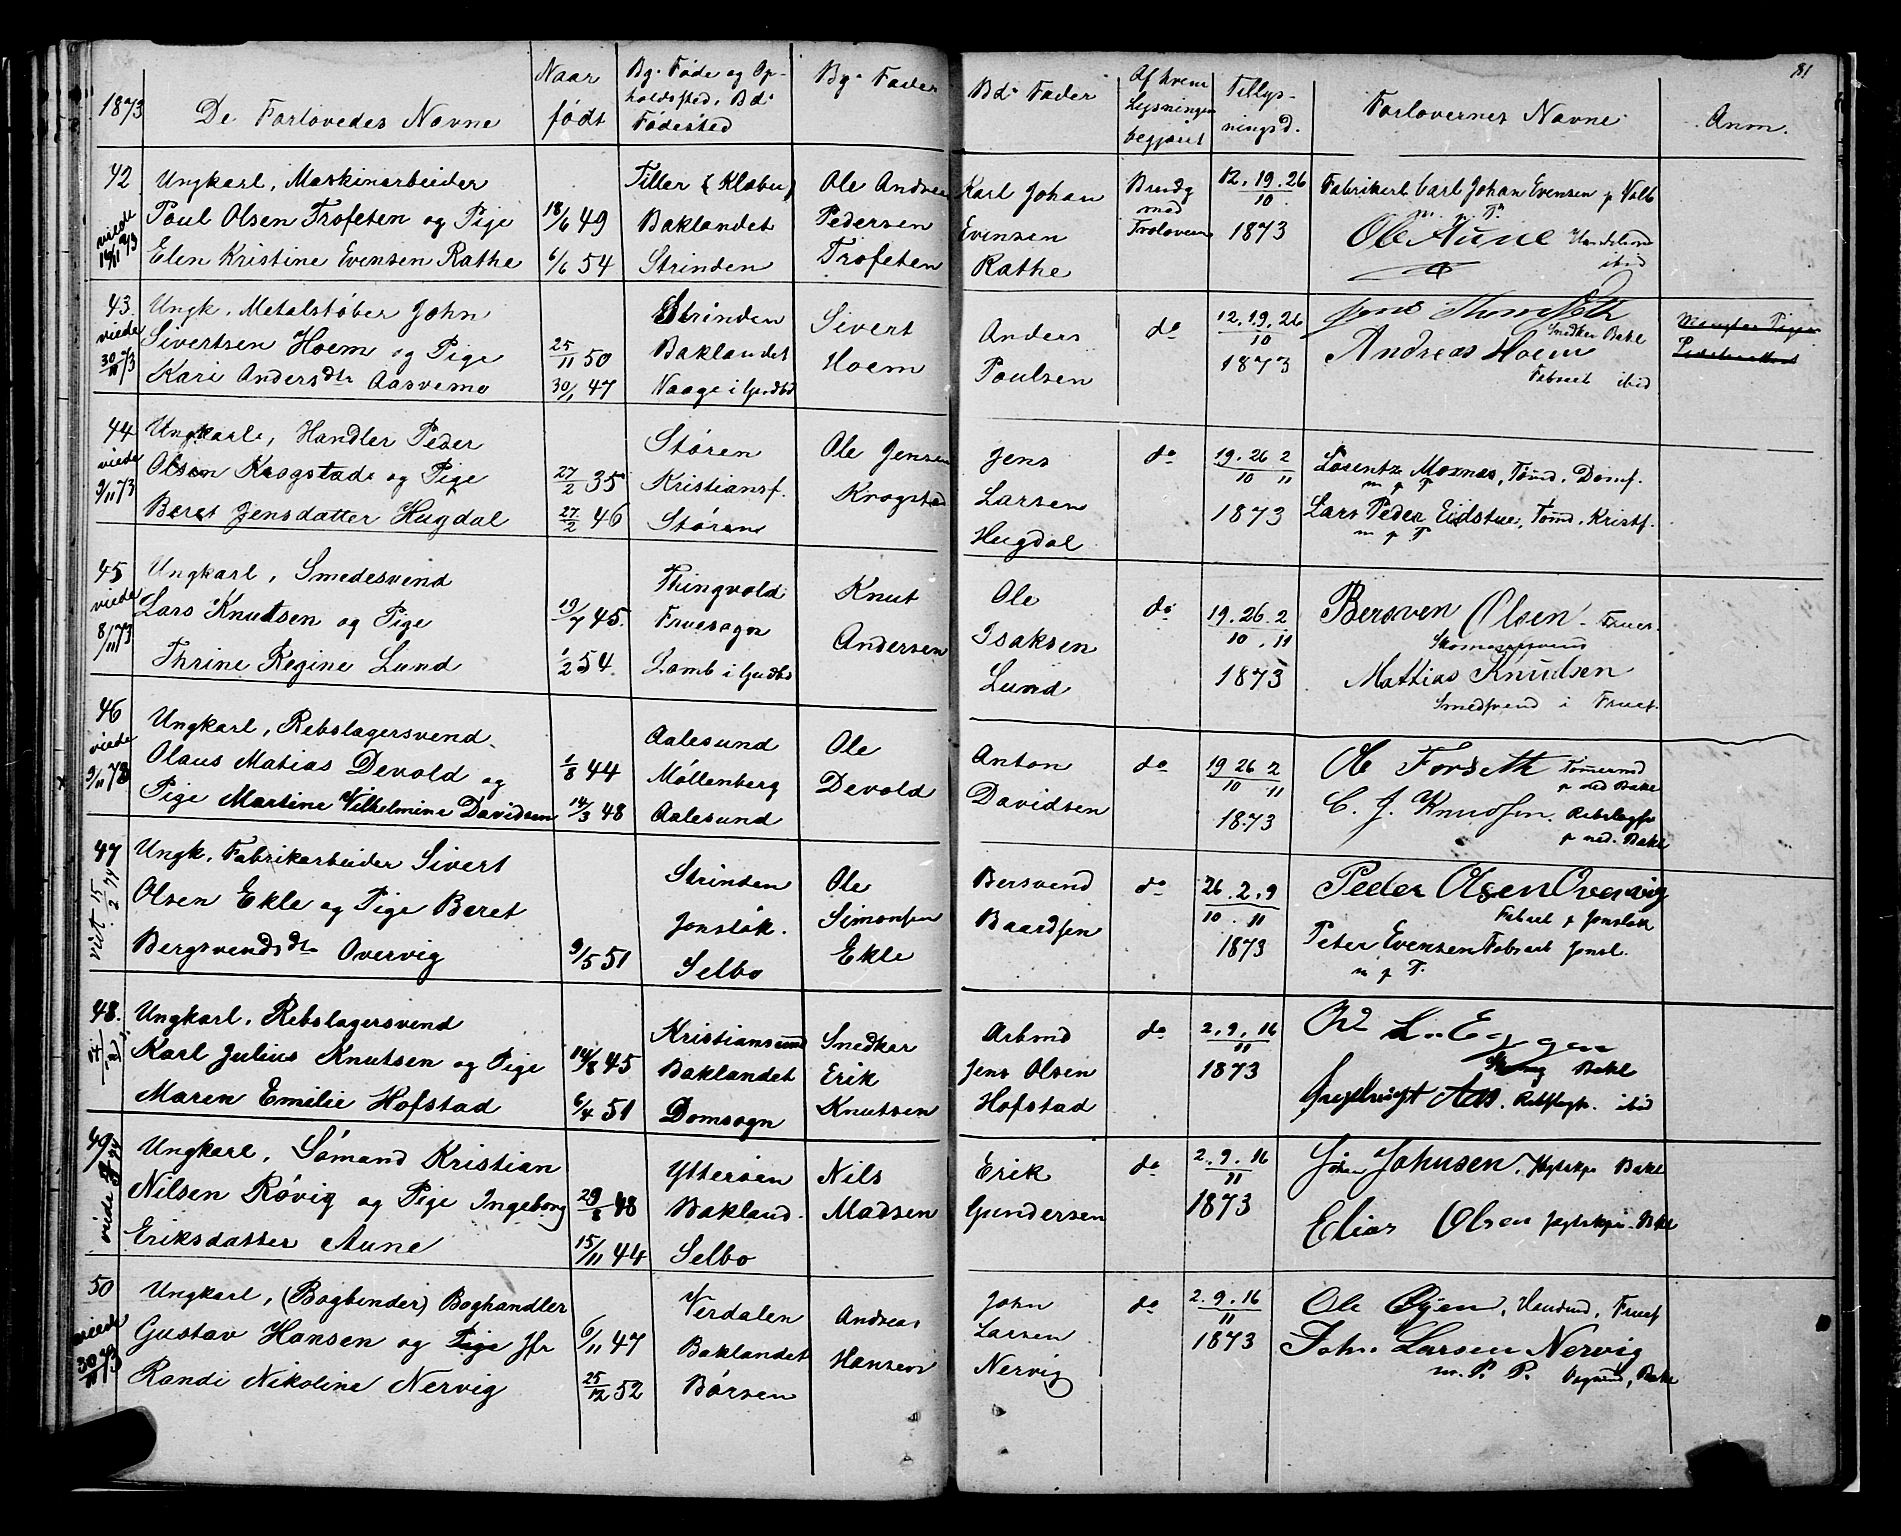 81
1873
De Forlovedes Navne
Naar født
Bg. Føde og Op-
holdssted, Bds
Fødested
Bgs Fader
Bds Fader
Af hvem
Lysningen
begjæret
Tillys-
ningsd.
Forlovernes Navne
Anm.
42
viede
Ungkarl, Maskinarbeider
Poul Olsen Trofeten og Pige
Elen Kristine Evensen Rathe
18/6 49
6/6 54
Tiller (Klæbu)
Baklandet
Strinden
Ole Andreas
Pedersen
Trofeten
Karl Johan
Evensen
Rathe
Brudg
med
Troloveren
12. 19. 26
10
1873
Fabrikarb Carl Johan Evensen p Volb
m. p. P.
Ole Aune Handelsm
ibid
43.
viede
30/11 73
Ungk. Metalstøber John
Sivertsen Hoem og Pige
Kari Andersdtr Aasvemo
25/11 50
30/1 47
Strinden
Baklandet
Naage i Gudbd
Sivert
Hoem
Anders
Poulsen
do
12. 19. 26
10
1873
Jens
Snedker Bakl
Andreas Hoem
Fabrarb ibid
44
viede
9/11 73
Ungkarl, Handler Peder
Olsen Krogstad og Pige
Beret Jensdatter Hugdal
27/2 35
27/2 46
Støren
Kristiansf.
Støren
Ole Jensen
Krogstad
Jens
Larsen
Hugdal
do
19. 26 2
10 11
1873
Losentz Moxnas, Tømd. Domf.
m p P
Lars Peder Eidstue, Tømd. Kristf.
m p P
45
viede
8/11 73
Ungkarl, Smedesvend
Lars Knutsen og Pige
Thrine Regine Lund
19/7 45.
1/2 54.
Thingvold
Fruesogn
Lomb i Gudbd
Knut
Andersen
Ole
Isaksen
Lund
do
19. 26. 2
10 . 11
1873
Bersven Olsen Frues.
Skomagersvend
Mattias Knudsen
Smedsvend i Fruef.
46
viede
9/11 73
Ungkarl, Rebslagersvend
Olaus Matias Devold og
Pige Martine Vilhelmine Davidsen
1/8 44
14/3 48
Aalesund
Møllenberg
Aalesund
Ole
Devold
Anton
Davidsen
do
19 26 2
10 11
1873
Ole Forseth Tømermd
p ned Bakl
C. J. Knudsen. Rebslagsv
p ned. Bakl
47
viet 15/2 74
Ungk. Fabrikarbeider Sivert
Olsen Ekle og Pige Beret
Bergsvendsdtr Overvig
9/5 51
Strinden
Jonsløk.
Selbo
Ole
Simonsen
Ekle
Bersvend
Baardsen
do
26. 2. 9
10 . 11
1873
Peder Olsen Overvig
Fabarb p Jonsløk
Peter Evensen Fabrarb Jonsl.
m p P.
48.
Ungkarl, Rebslagersvend
Karl Julius Knutsen og Pige
Maren Emilie Hofstad
14/8 45
6/4 51
Kristiansund
Baklandet
Domsogn
Snedker
Erik
Knutsen
Arbmd
Jens Olsen
Hofstad
do
2. 9. 16
11
1873
L. Eggen
Bakl
Ingebrigt Aas. Rebslagsv. ibid
49
viede
Ungkarl, Sømand Kristian
Nilsen Røvig og Pige Ingeborg
Eriksdatter Aune
29/8 48
15/11 44
Ytterøen
Bakland.
Selbo
Nils
Madsen
Erik
Gundersen
do
2. 9. 16
11
1873
Johan Johnsen, Jagtskpr Bakl
Elias Olsen Jagtskpr. Bakl
50
viede
30/11 73
Ungkarl, (Bogbinder) Boghandler
Gustav Hansen og Pige Jfr
Randi Nikoline Nervig
6/11 47
25/12 52
Verdalen
Baklandet
Børsen
Andreas
Hansen
John
Larsen
Nervig
do
2. 9. 16
11
1873
Ole Øyen, Handmd, Fruef
John Larsen Nervig
m. P. P. Bakl